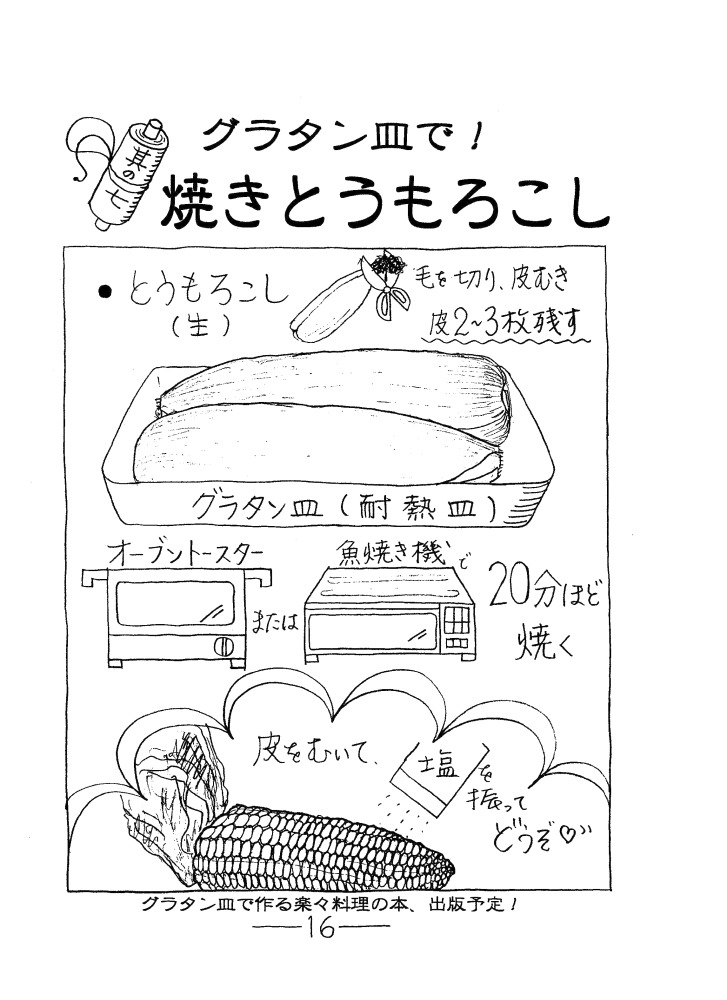 其の七
グラタン皿で！
焼きとうもろこし
● とうもろこし
（生）
毛を切り、皮むき
皮2〜3枚残す
グラタン皿（耐熱皿）
オーブントースター
または
魚焼き機で
20分ほど
焼く
皮をむいて、
塩を
振って
どうぞ♡
グラタン皿で作る楽々料理の本、出版予定！
—16—